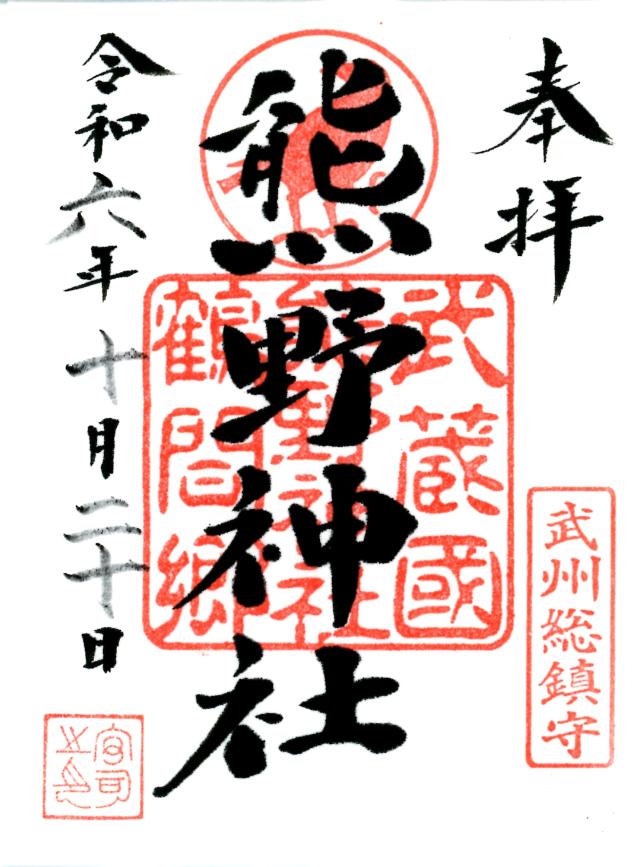 奉拝
武州総鎮守
熊野神社
武蔵國
熊野神社
鶴間郷
令和六年十月二十日
宮司之印